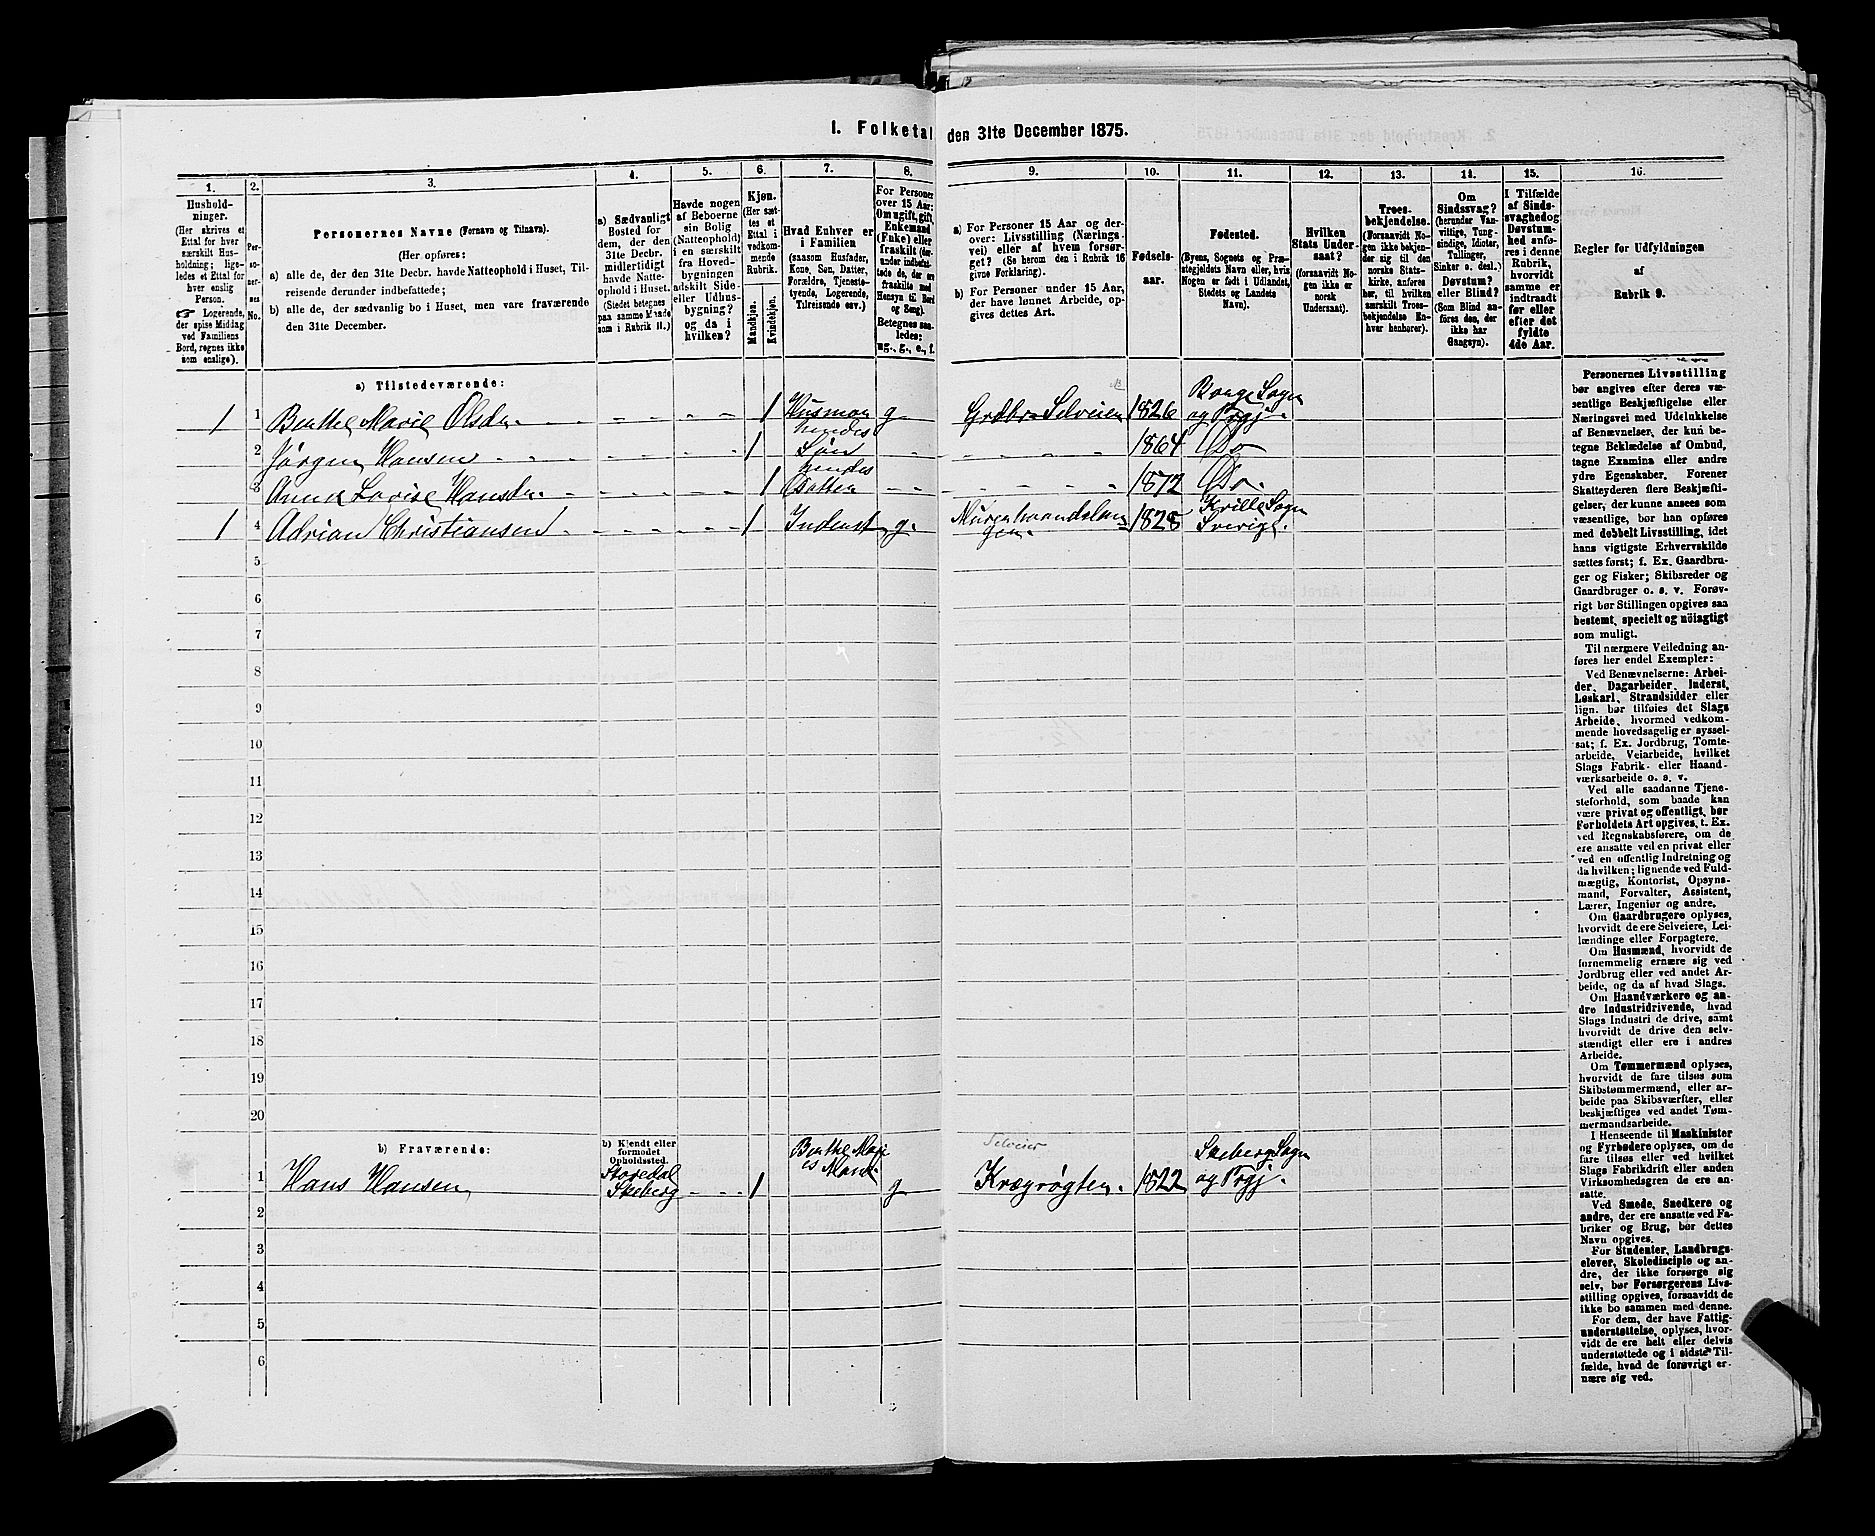 I. Folketal den 31te December 1875.
1.
2.
3.
4.
5.
6.
7.
8.
9.
10.
11.
12.
13.
14.
15.
16.
Hushold-
ninger.
(Her skrives et
Ettal for hver
særskilt Hus-
holdning; lige-
ledes et Ettal for
hver enslig
Person.
☛ Logerende,
der spise Middag
ved Familiens
Bord, regnes ikke
som enslige).
Per-
so-
ner-
nes
No.
Personernes Navne (Fornavn og Tilnavn).
(Her opføres:
a) alle de, der den 31te Decbr. havde Natteophold i Huset, Til-
reisende derunder indbefattede;
b) alle de, der sædvanlig bo i Huset, men vare fraværende
den 31te December.
a) Sædvanligt
Bosted for
dem, der den
31te Decbr.
midlertidigt
havde Natte-
ophold i Huset.
(Stedet betegnes
paa samme Maade
som i Rubrik 11.)
Havde nogen
af Beboerne
sin Bolig
(Natteophold)
en særskilt
fra Hoved-
bygningen
adskilt Side-
eller Udhus-
bygning?
og da i
hvilken?
Kjøn.
(Her sæt-
tes et
Ettal i
vedkom-
mende
Rubrik.
Mandkjøn.
Kvindekjøn.
Hvad Enhver er
i Familien
(saasom Husfader,
Kone, Søn, Datter,
Forældre, Tjeneste-
tyende, Logerende,
Tilreisende osv.)
For Personer
over 15 Aar:
Om ugift, gift,
Enkemand
(Enke) eller
fraskilt (der-
under indbefat-
tede de, der ere
fraskilte med
Hensyn til Bord
og Seng).
Betegnes saa-
ledes:
ug., g., e., f.
a) For Personer 15 Aar og der-
over: Livsstilling (Nærings-
vei) eller af hvem forsør-
get? (Se herom den i Rubrik 16
givne Forklaring).
b) For Personer under 15 Aar,
der have lønnet Arbeide, op-
gives dettes Art.
Fødsels-
aar.
Fødested.
(Byens, Sognets og Præ-
stegjeldets Navn eller, hvis
Nogen er født i Udlandet,
Stedets og Landets
Navn).
Hvilken
Stats Under-
saat?
(forsaavidt No-
gen ikke er
norsk
Undersaat).
Troes-
bekjendelse.
(Forsaavidt No-
gen ikke bekjen-
der sig til den
norske Stats-
kirke, anføres
her, til hvilken
særskilt Troes-
bekjendelse En-
hver henhører).
Om
Sindssvag?
(herunder Van-
vittige, Tung-
sindige, Idioter,
Tullinger,
Sinker o. desl.)
Døvstum?
eller Blind?
(Som Blind an-
føres den, der
ikke har
Gangsyn).
I Tilfælde
af Sinds-
svaghed og
Døvstum-
hed anfø-
res i denne
Rubrik,
hvorvidt
samme er
indtraadt
før eller
efter det
fyldte
4de Aar.
Regler for Udfyldningen
af
Rubrik 9.
a) Tilstedeværende:
1 1 Benthe Marie Olsdr. 1 Husmor g Grdbr. Selveier 1826 Borge Sogn og Prgj.
2 Jørgen Hansen 1 hendes Søn 1864 Do
3 Anne Lovise Hansdr. 1 hendes Datter 1872 Do.
1 4 Adrian Christiansen 1 Inderst g. 1828 Kville Sogn Sverige.
5
6
7
8
9
10
11
12
13
14
15
16
17
18
19
20
b) Fraværende:
b) Kjendt eller
formodet
Opholdssted.
Selveier
1 Hans Hansen Storedal Skeberg 1 Benthe Maries Mand. g Krøgrøgter. 1822 Skeberg Sogn og Prgj.
2
3
4
5
6
Personernes Livsstilling
bør angives efter deres væ-
sentlige Beskjæftigelse eller
Næringsvei med Udelukkelse
af Benævnelser, der kun be-
tegne Beklædelse af Ombud,
tagne Examina eller andre
ydre Egenskaber. Forener
Skatteyderen flere Beskjæfti-
gelser, der kunne ansees som
væsentlige, bør han opføres
med dobbelt Livsstilling, idet
hans vigtigste Erhvervskilde
sættes først; f. Ex. Gaardbru-
ger og Fisker; Skibsreder og
Gaardbruger o. s. v. Forøv-
rigt bør Stillingen opgives saa
bestemt, specielt og nöiagtigt
som muligt.
Til nærmere Veiledning an-
føres her endel Exempler:
Ved Benævnelserne: Arbei-
der, Dagarbeider, Inderst,
Løskarl, Strandsidder eller
lign. bør tilføies det Slags
Arbeide, hvormed vedkom-
mende hovedsagelig er syssel-
sat; f. Ex. Jordbrug, Tomte-
arbeide, Veiarbeide, hvilket
Slags Fabrik- eller Haand-
værksarbeide o. s. v.
Ved alle saadanne Tjene-
steforhold, som baade kan
være privat og offentligt, bør
Forholdets Art opgives, t. Ex.
ved Regnskabsførere, om de
ere ansatte ved en privat eller
ved en offentlig Indretning og
da hvilken; lignende ved Fuld-
mægtig, Kontorist, Opsyns-
mand, Forvalter, Assistent,
Lærer, Ingeniør og andre.
Om Gaardbrugere oplyses,
hvorvidt de ere Selveiere, Lei-
lændinge eller Forpagtere.
Om Husmænd, hvorvidt de
fornemmelig ernære sig ved
Jordbrug eller ved andet Ar-
beide, og da af hvad Slags.
Om Haandværkere og an-
dre Industridrivende, hvad
Slags Industri de drive, samt
hvorvidt de drive den selv-
stændigt eller ere i andres
Arbeide.
Om Tømmermænd oplyses,
hvorvidt de fare tilsøs som
Skibstømmermænd, eller ar-
beide paa Skibsværfter, eller
beskjæftiges ved andet Tøm-
mermandsarbeide.
I Henseende til Maskinister
og Fyrbødere oplyses, om de
fare tilsøs eller ved hvilket
Slags Fabrikdrift eller anden
Virksomhedsgren de ere an-
satte.
Ved Smede, Snedkere og
andre, der ere ansatte ved Fa-
briker og Brug, bør dettes
Navn opgives.
For Studenter, Landbrugs-
elever, Skoledisciple og an-
dre, der ikke forsørge sig
selv, bør Forsørgerens Livs-
stilling opgives, forsaavidt de
ikke bo sammen med denne.
For dem, der have Fattig-
understøttelse, oplyses, hvor-
vidt de ere helt eller delvis
understøttede og i sidste Til-
fælde, hvad de forøvrigt er-
nære sig ved.